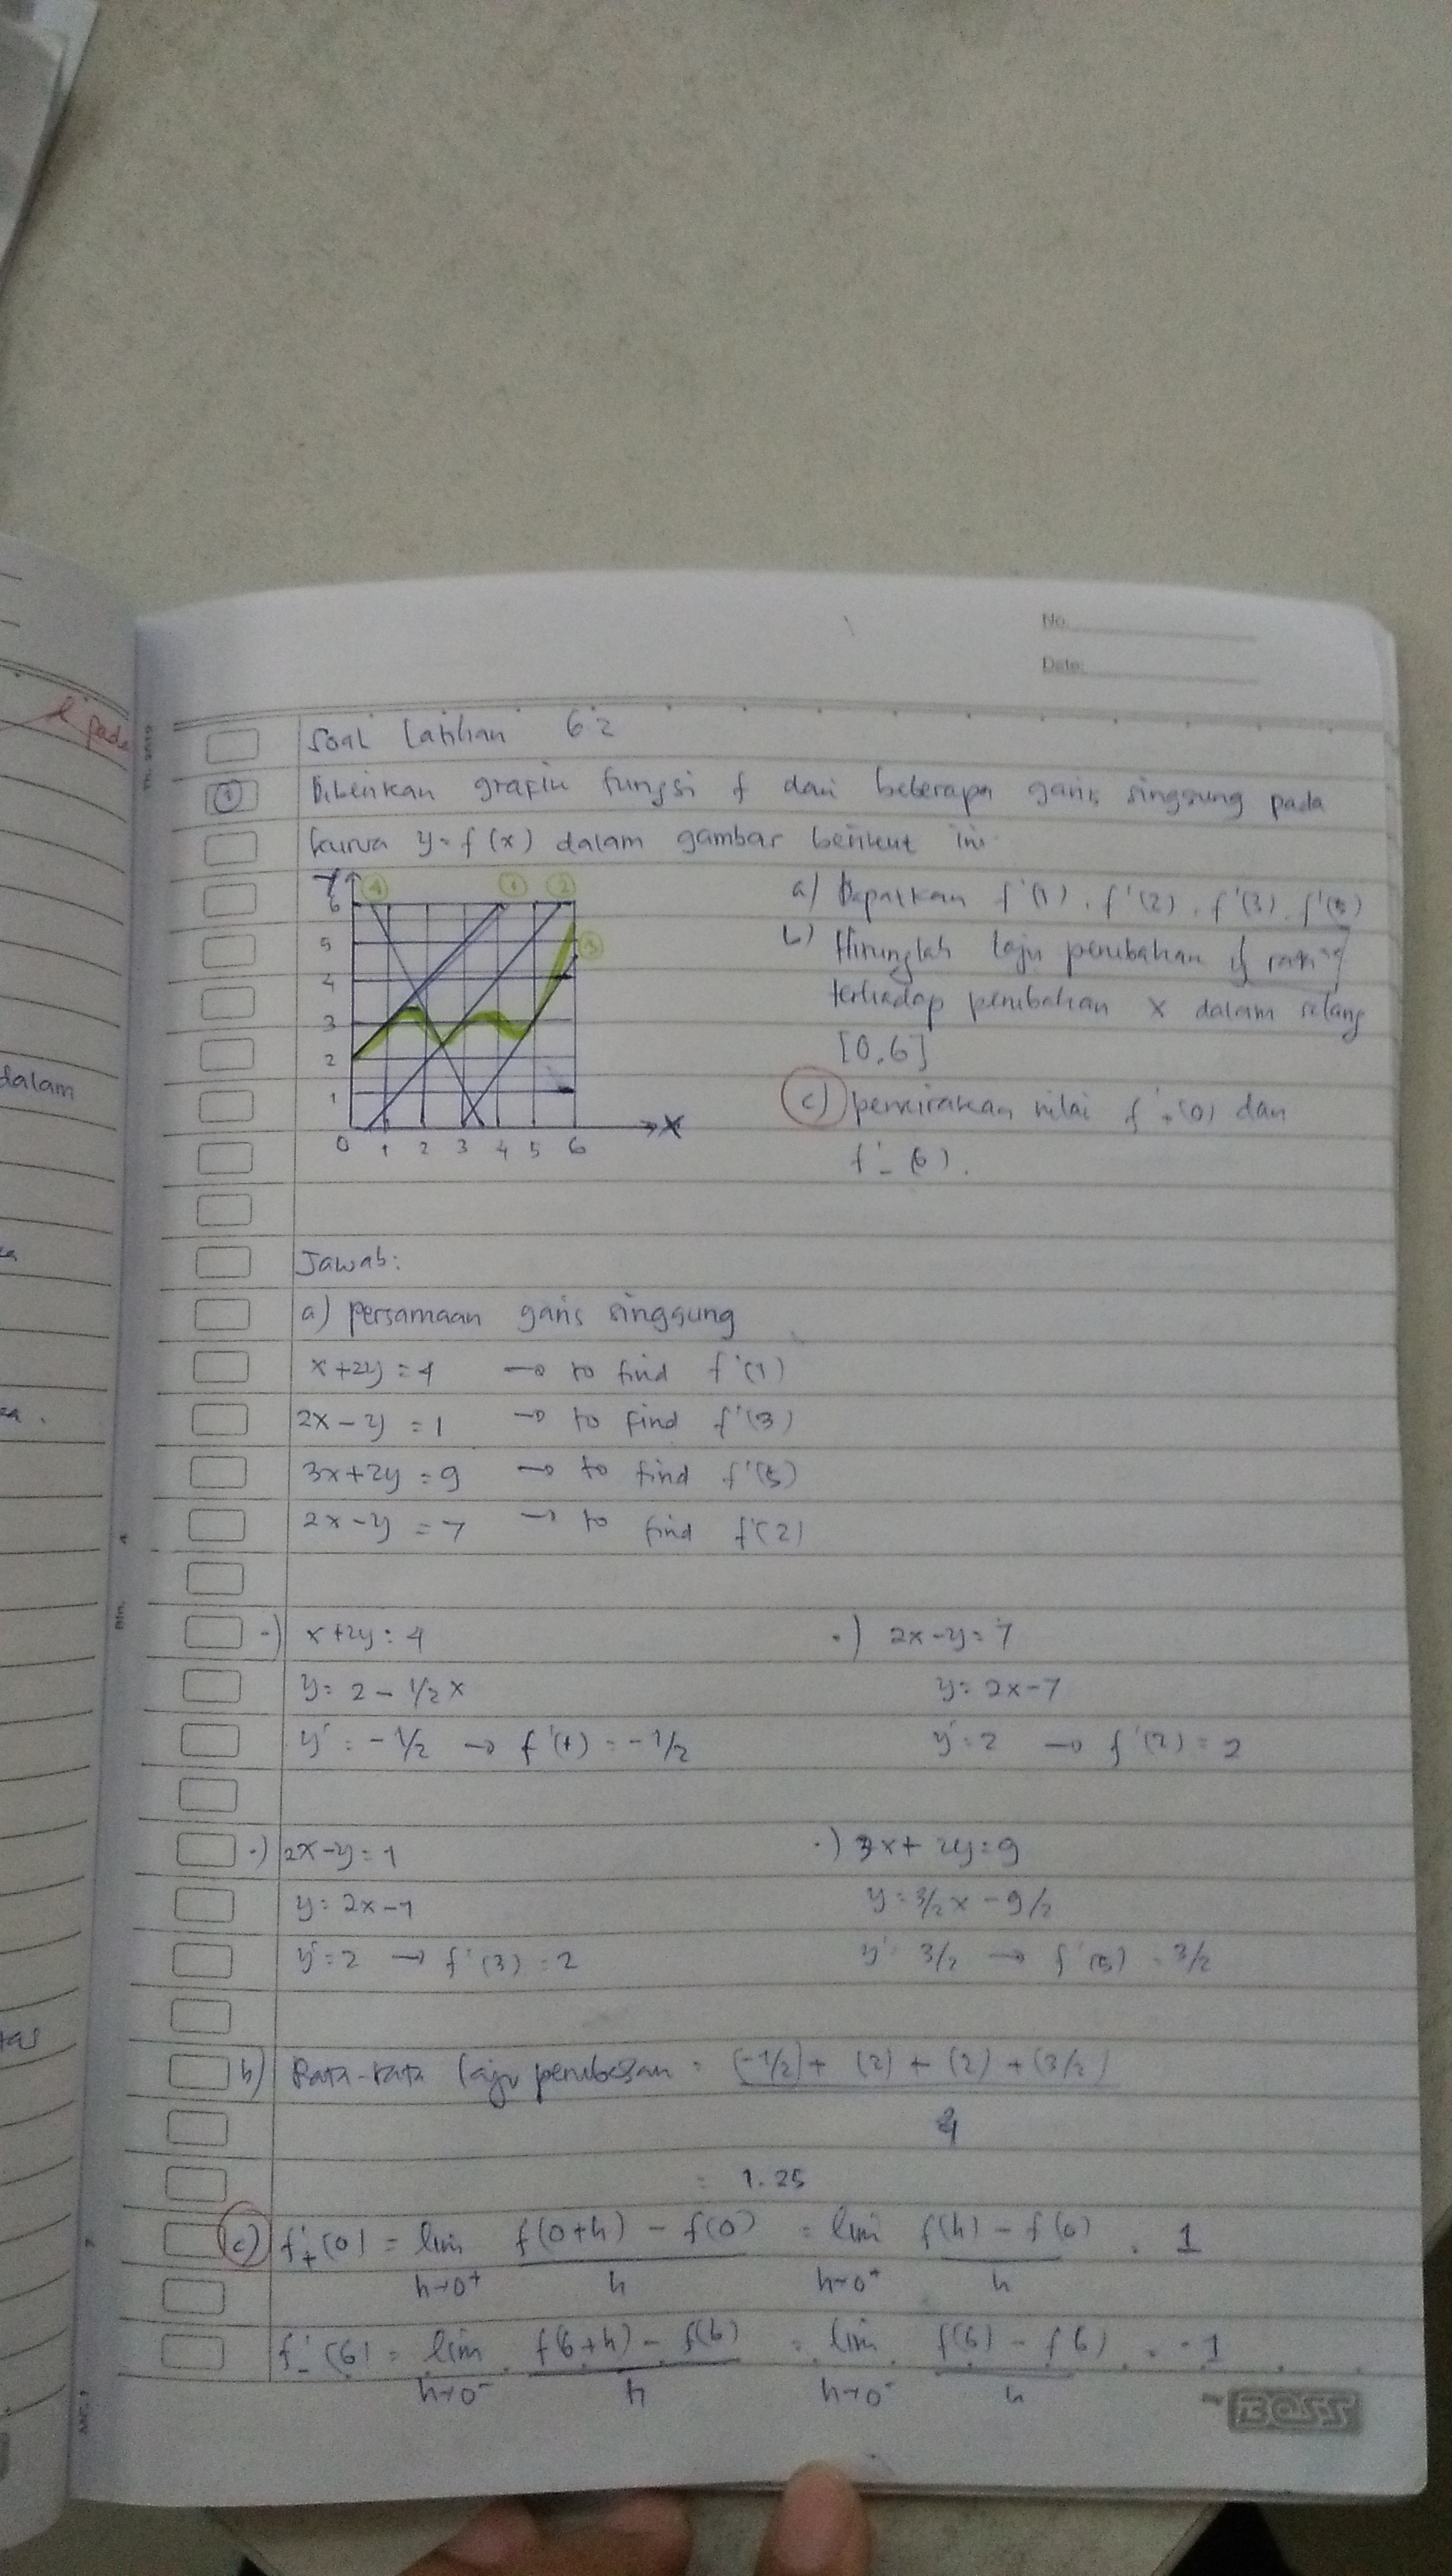 No.
Date:
l pada
Th. 2019
Soal Latihan 6.2
① Diberikan grafik fungsi f dan beberapa garis singgung pada
kurva y=f(x) dalam gambar berikut ini
Y
④ ① ②
③
6
5
4
3
2
1
0 1 2 3 4 5 6
X
a) Dapatkan f'(1), f'(2), f'(3), f'(5)
b) Hitunglah laju perubahan y rata-rata
terhadap perubahan x dalam selang
[0,6]
c) perkirakan nilai f'+(0) dan
f'-(6).
dalam
Jawab:
a) persamaan garis singgung
x+2y=4 → to find f'(1)
2x-y=1 → to find f'(3)
3x+2y=9 → to find f'(5)
2x-y=7 → to find f'(2)
-) x+2y=4
y=2-1/2x
y'=-1/2 → f'(1)=-1/2
-) 2x-y=7
y=2x-7
y'=2 → f'(2)=2
-) 2x-y=1
y=2x-1
y'=2 → f'(3)=2
-) 3x+2y=9
y=3/2x-9/2
y'=3/2 → f'(5)=3/2
b) Rata-rata laju perubahan = (-1/2)+(2)+(2)+(3/2)
4
= 1.25
c) f'+(0) = lim f(0+h)-f(0) = lim f(h)-f(0) = 1
h→0+ h h→0+ h
f'-(6) = lim f(6+h)-f(6) = lim f(6)-f(6) = -1
h→0- h h→0- h
BOSS